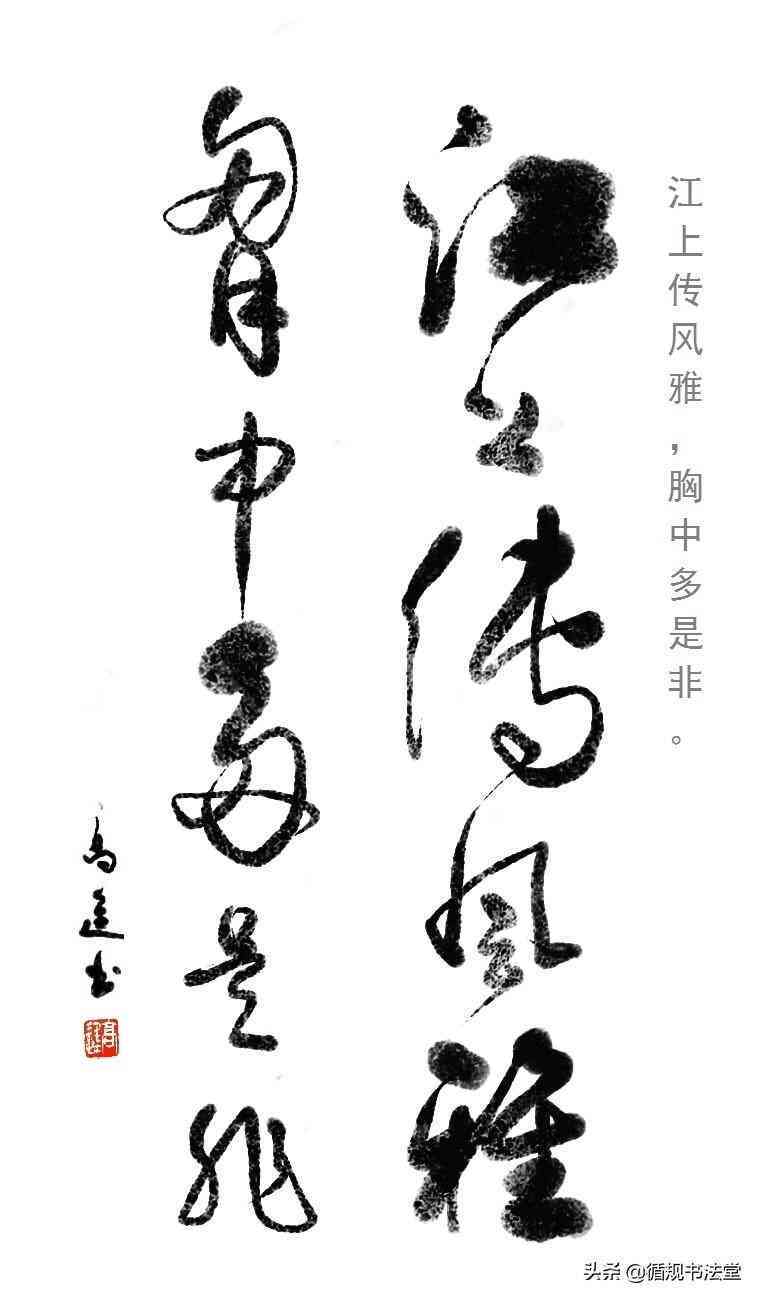 江上传风雅，胸中多是非。
江上傳風雅
胷中多是非
高 书
头条 @循规书法堂